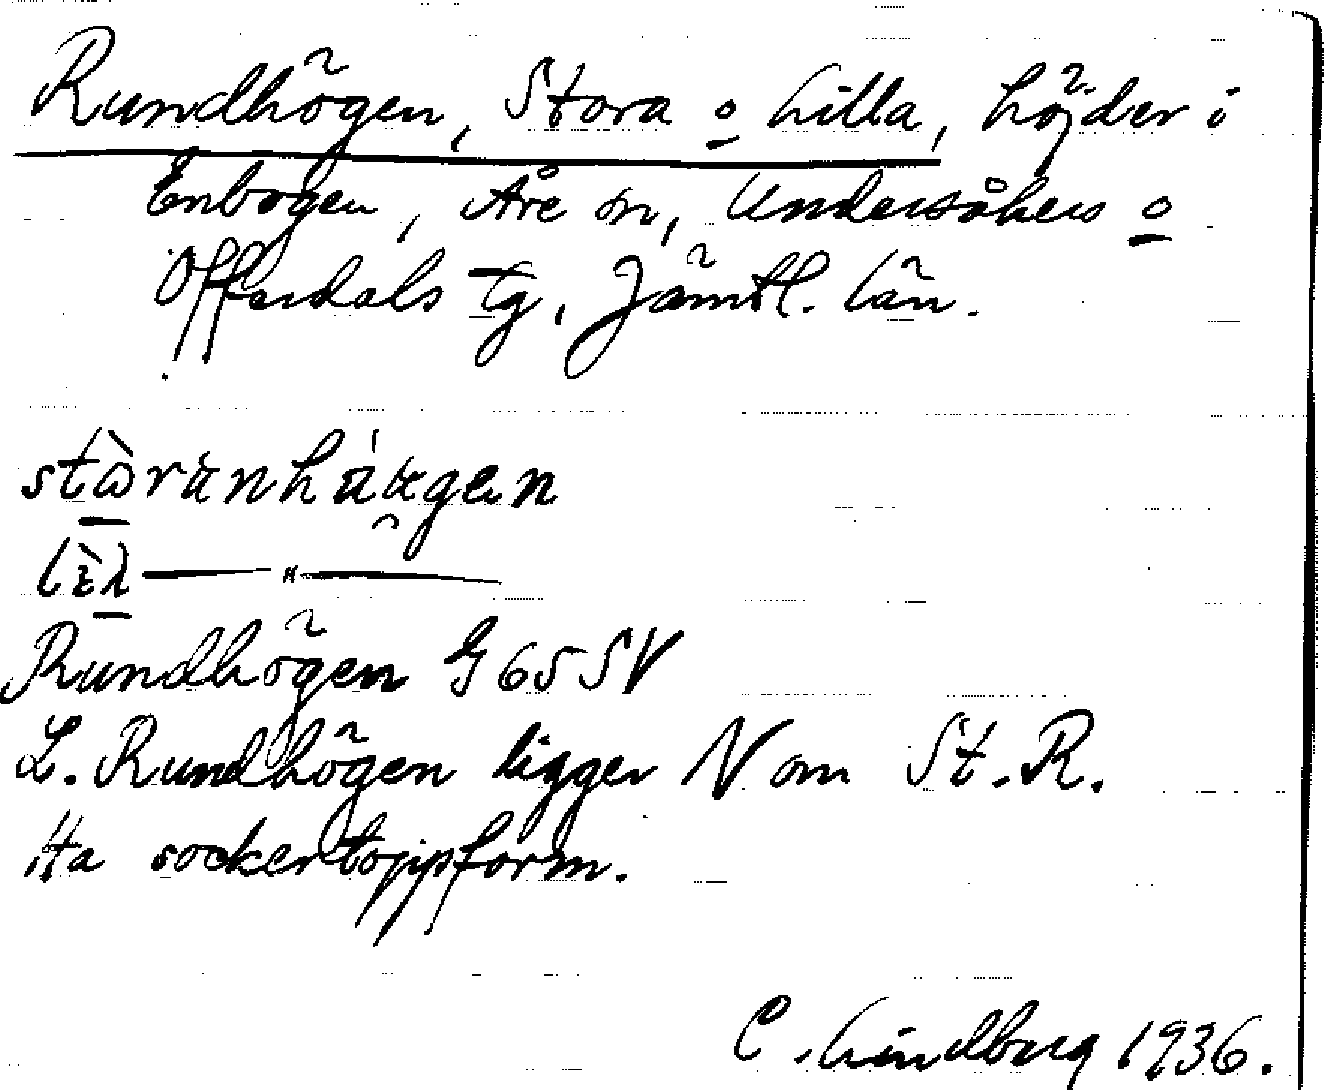 Rundhögen, Stora o Lilla, höjder i
Enbogen, Åre sn, Undersåkers o
Offerdals tg, Jämtl. län.
Rundhögen G 65 SV
L. Rundhögen ligger N om St. R.
Ha sockertoppsform.
C. Lindberg 1936.